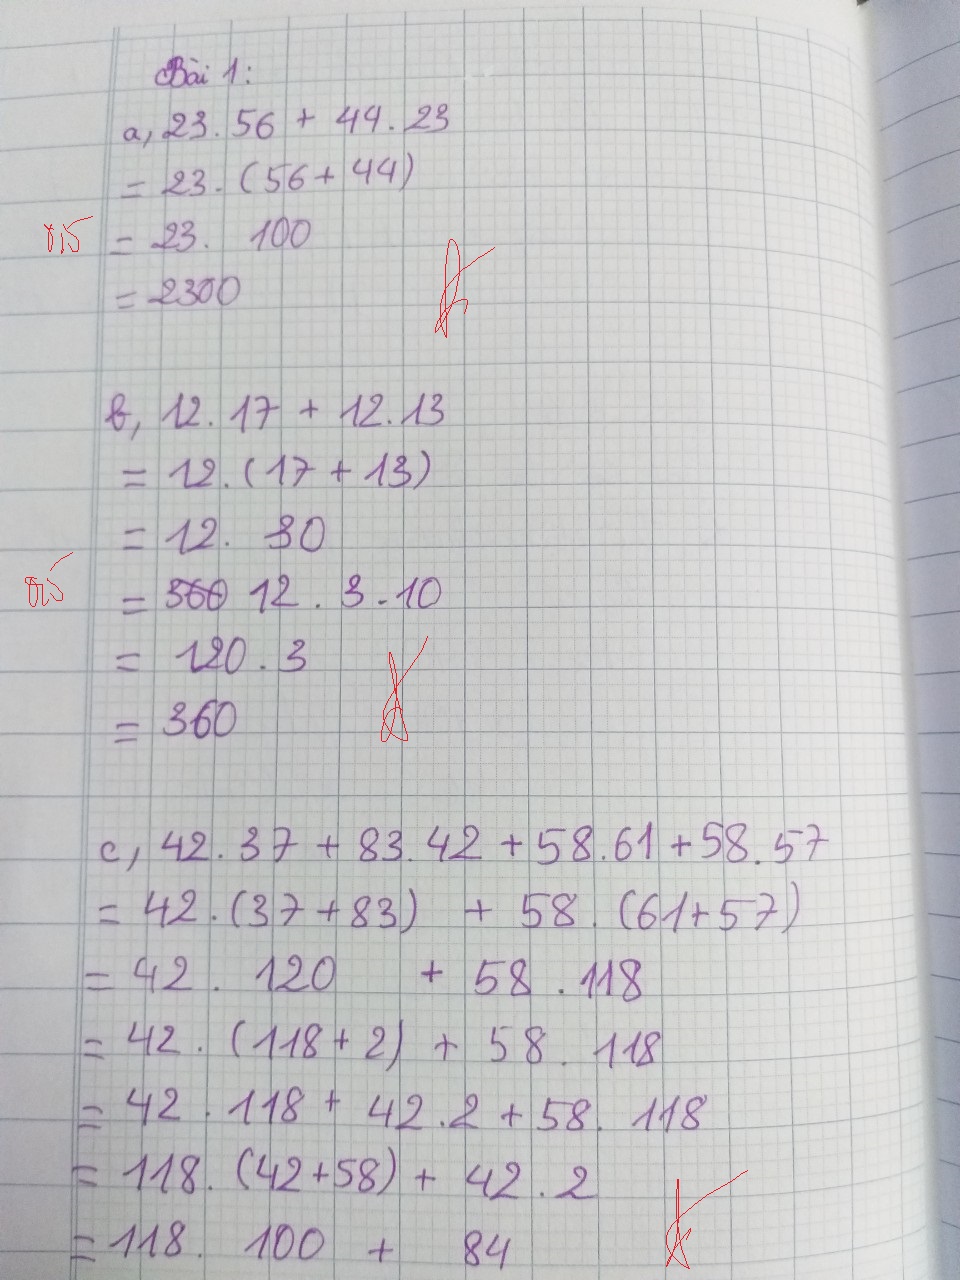 Bài 1:
a, 23.56 + 44.23
= 23.(56+44)
0,5
= 23. 100
= 2300
b, 12.17 + 12.13
= 12.(17+13)
= 12. 30
0,5
= 360 12.3.10
= 120.3
= 360
c, 42.37 + 83.42 + 58.61 + 58.57
= 42.(37+83) + 58.(61+57)
= 42. 120 + 58.118
= 42.(118+2) + 58.118
= 42.118 + 42.2 + 58.118
= 118.(42+58) + 42.2
= 118. 100 + 84